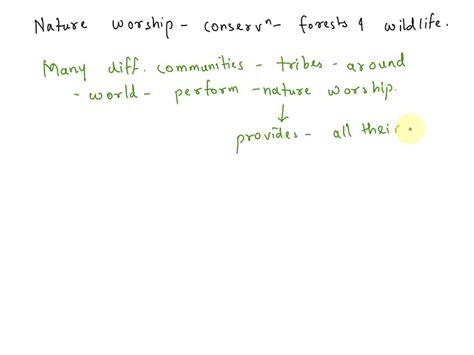 Nature worship - conservⁿ - forests & wildlife.
Many diff. communities - tribes - around
- world - perform - nature worship.
↓
provides - all their